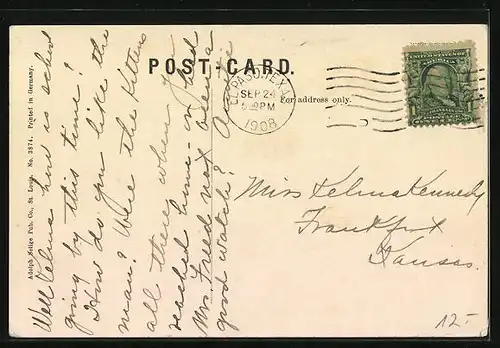 POST-CARD.
For address only.
EL PASO, TEXAS
SEP 24
1908
Well Velma how is school
going by this time?
How do you like the
man? Were the kittens
all there when you
reached home - in
Mrs. Freed
good watch?
Miss Velma Kennedy
Frankfort
Kansas.
Adolph Selige Pub. Co., St. Louis. No. 3874. Printed in Germany.
12.-